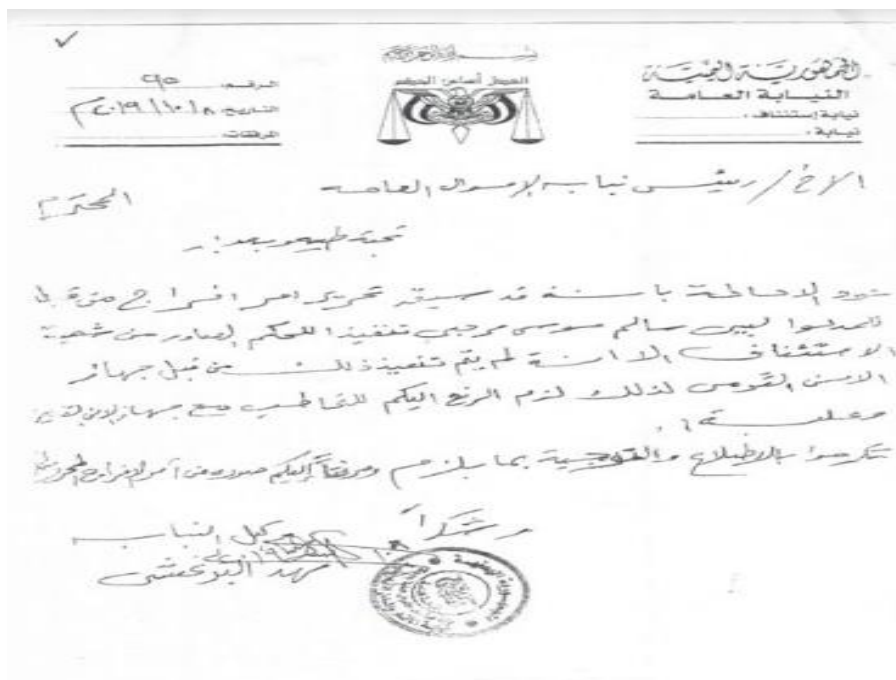 بسم الله الرحمن الرحيم
الجمهورية اليمنية
النيابة العامة
نيابة إستئناف
نيابة
العدل أساس الحكم
الرقم: ٩٥
التاريخ: ٨/١٠/٢٠١٩م
المرفقات:
الأخ/ رئيس نيابة الأموال العامة المحترم
تحية طيبة وبعد:
نود الإحاطة بأنه قد سبق تحرير امر افراج من قبل
ليبي سالم موسى مرحبي تنفيذا للحكم الصادر من شعبة
الاستئناف الا انه لم يتم تنفيذ ذلك من قبل جهاز
الامن القومي لذلك لزم الرفع اليكم للتخاطب مع جهاز الامن القومي
وعليه
تكرموا بالاطلاع والتوجيه بما يلزم ومرفقاً إليكم صورة من أمر الإفراج المحرر
وشكراً
وكيل النيابة